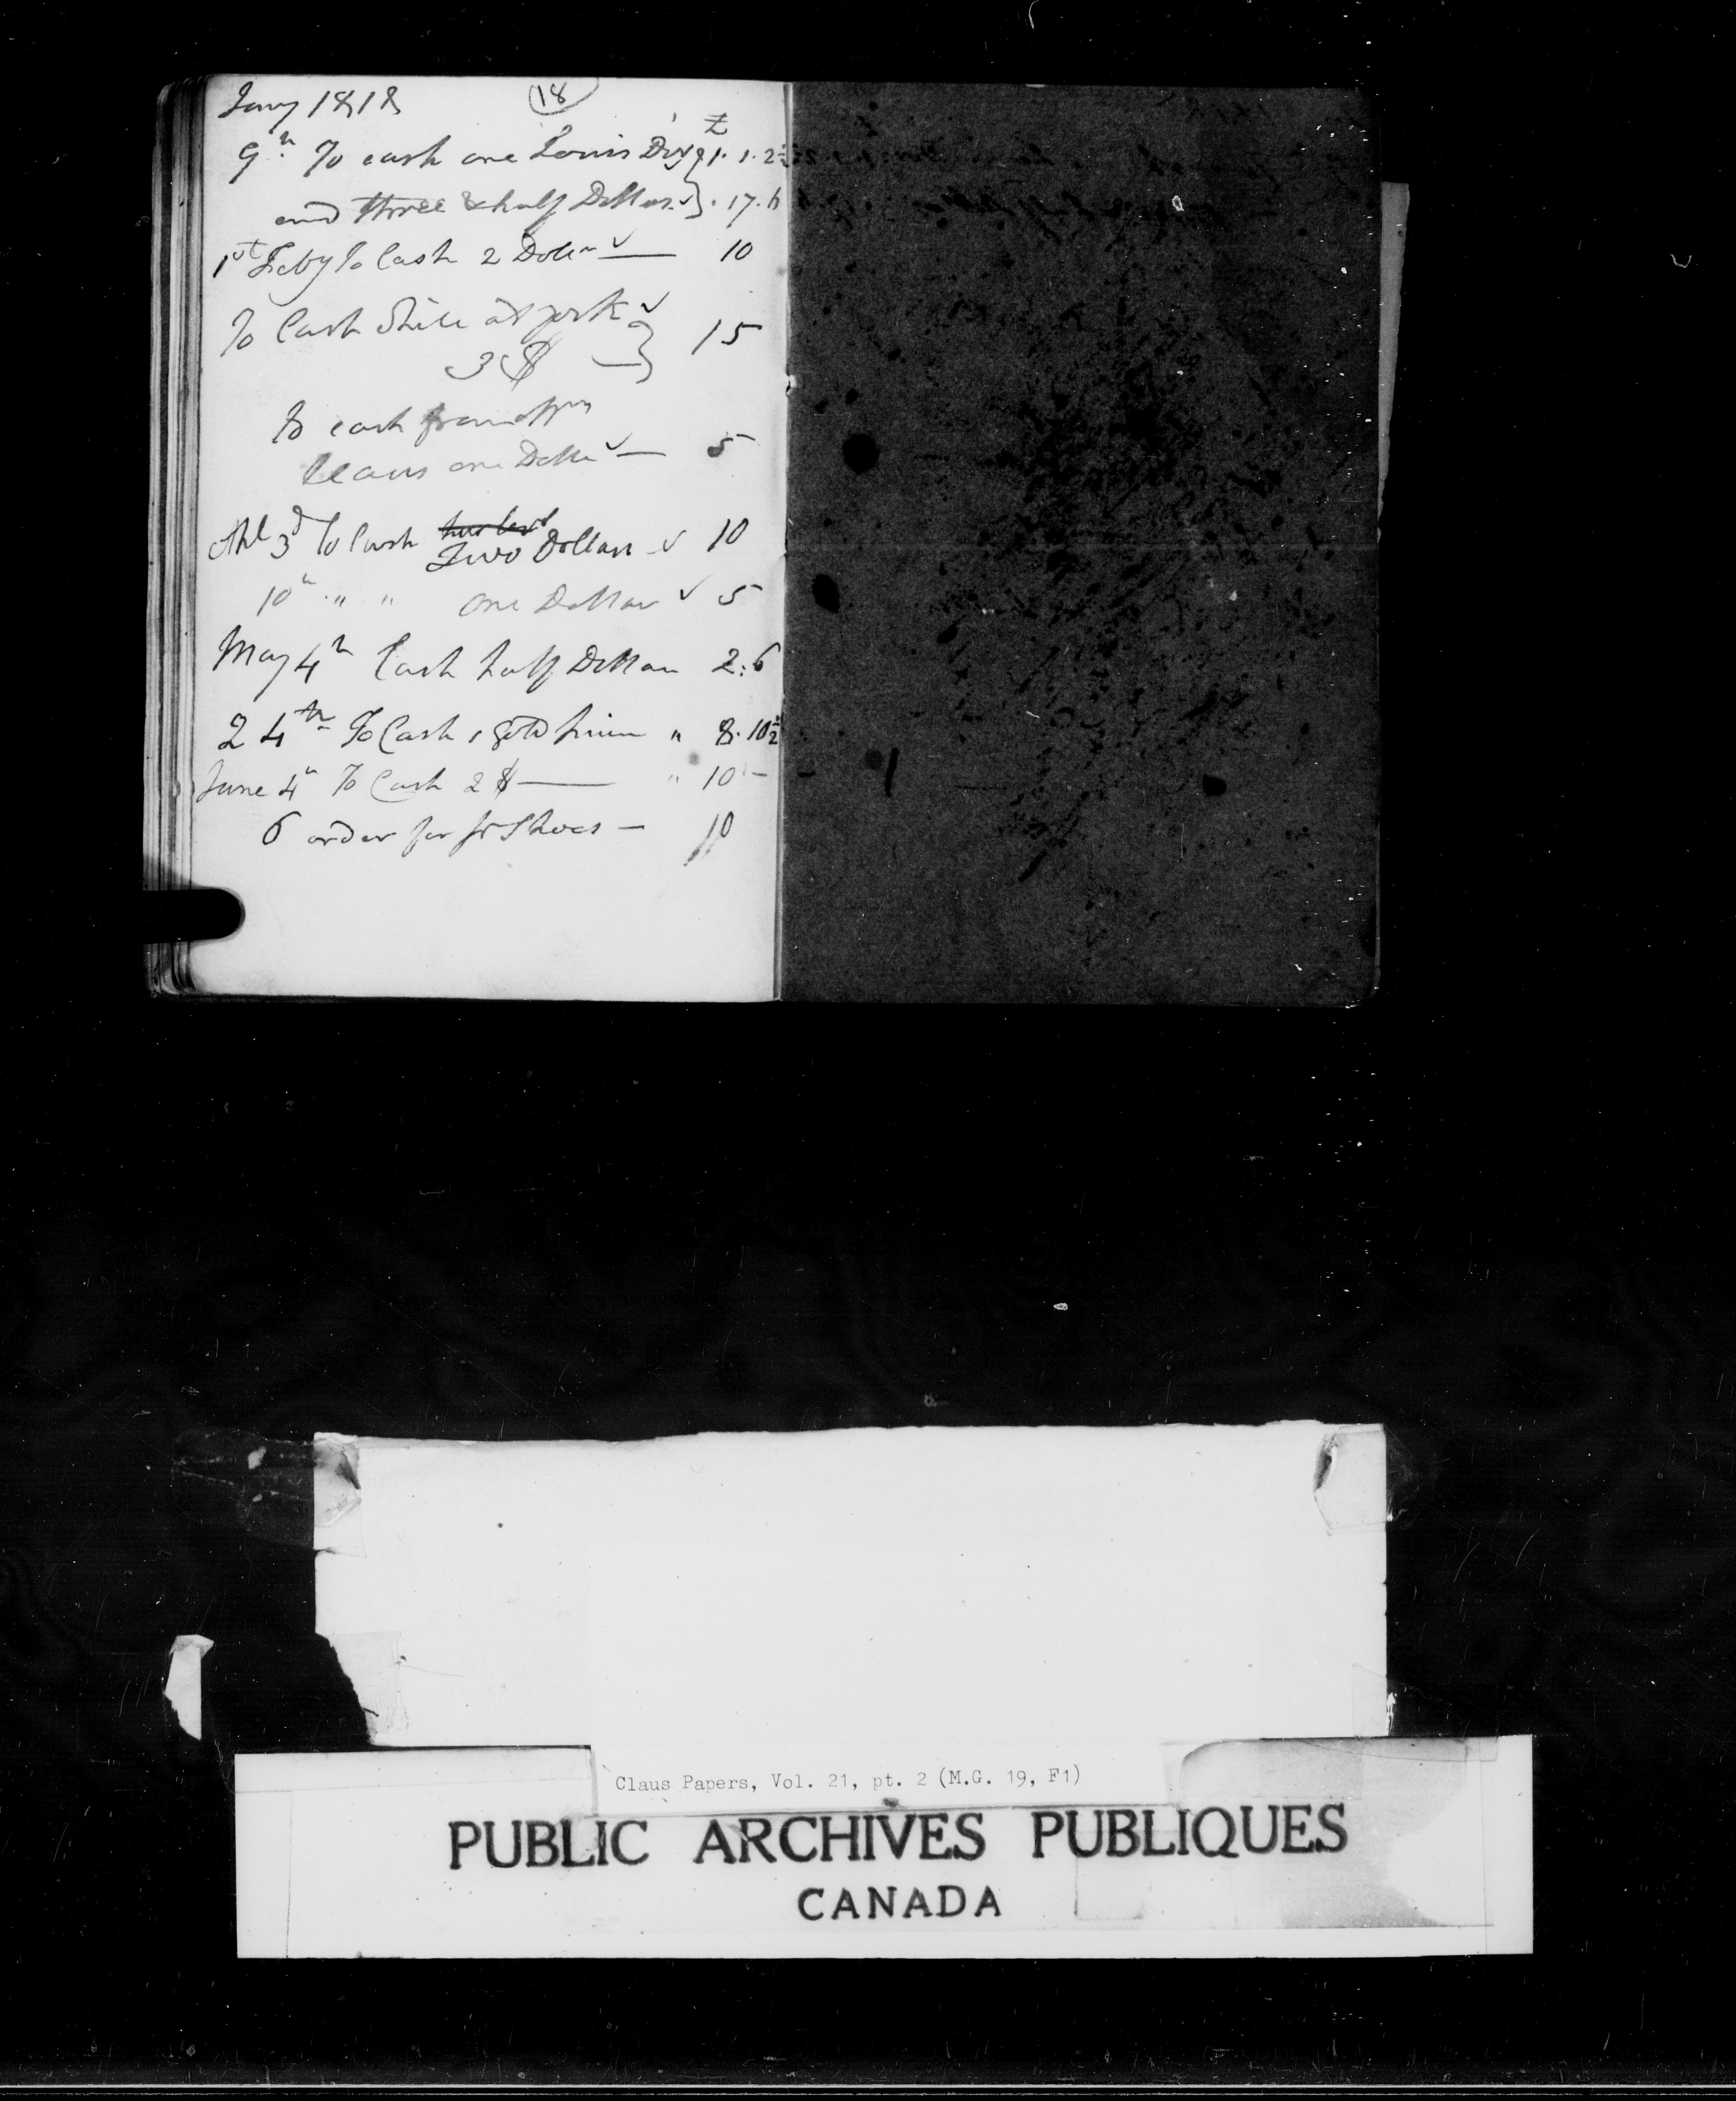 Jany 1818
18
£
9th To cash one Louis Dor } 1. 1. 2
and three & half Dollars } . 17. 6
1st Feby To Cash 2 Doll — 10
To Cash at york
3 $ — } 15
To cash from
Claus one Dolle — 5
Apl 3d To Cash
Two Dollars 10
10th " " One Dollar 5
May 4th Cash half Dollar 2:6
24th To Cash 1 " 8. 10½
June 4th To Cash 2 $ — " 10 –
6 order for pr Shoes — 10
Claus Papers, Vol. 21, pt. 2 (M.G. 19, F1)
PUBLIC ARCHIVES PUBLIQUES
CANADA